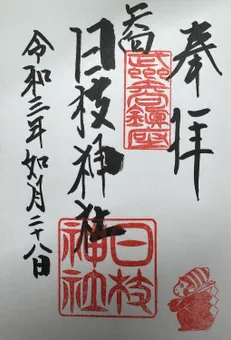 奉拝
日枝神社
令和三年如月二十八日
日枝
神社